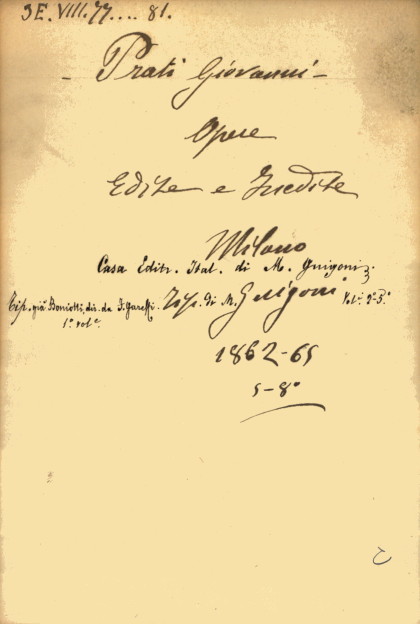 3E. VIII. 77.... 81.
- Prati Giovanni -
Opere
Edite e Inedite
Milano
Casa Editr. Ital. di M. Guigoni;
Tip. già Boniotti, dir. da F. Gareffi. Tip. di M. Guigoni Vol.i 2º-5º
1º vol.e
1862-65
5-8º